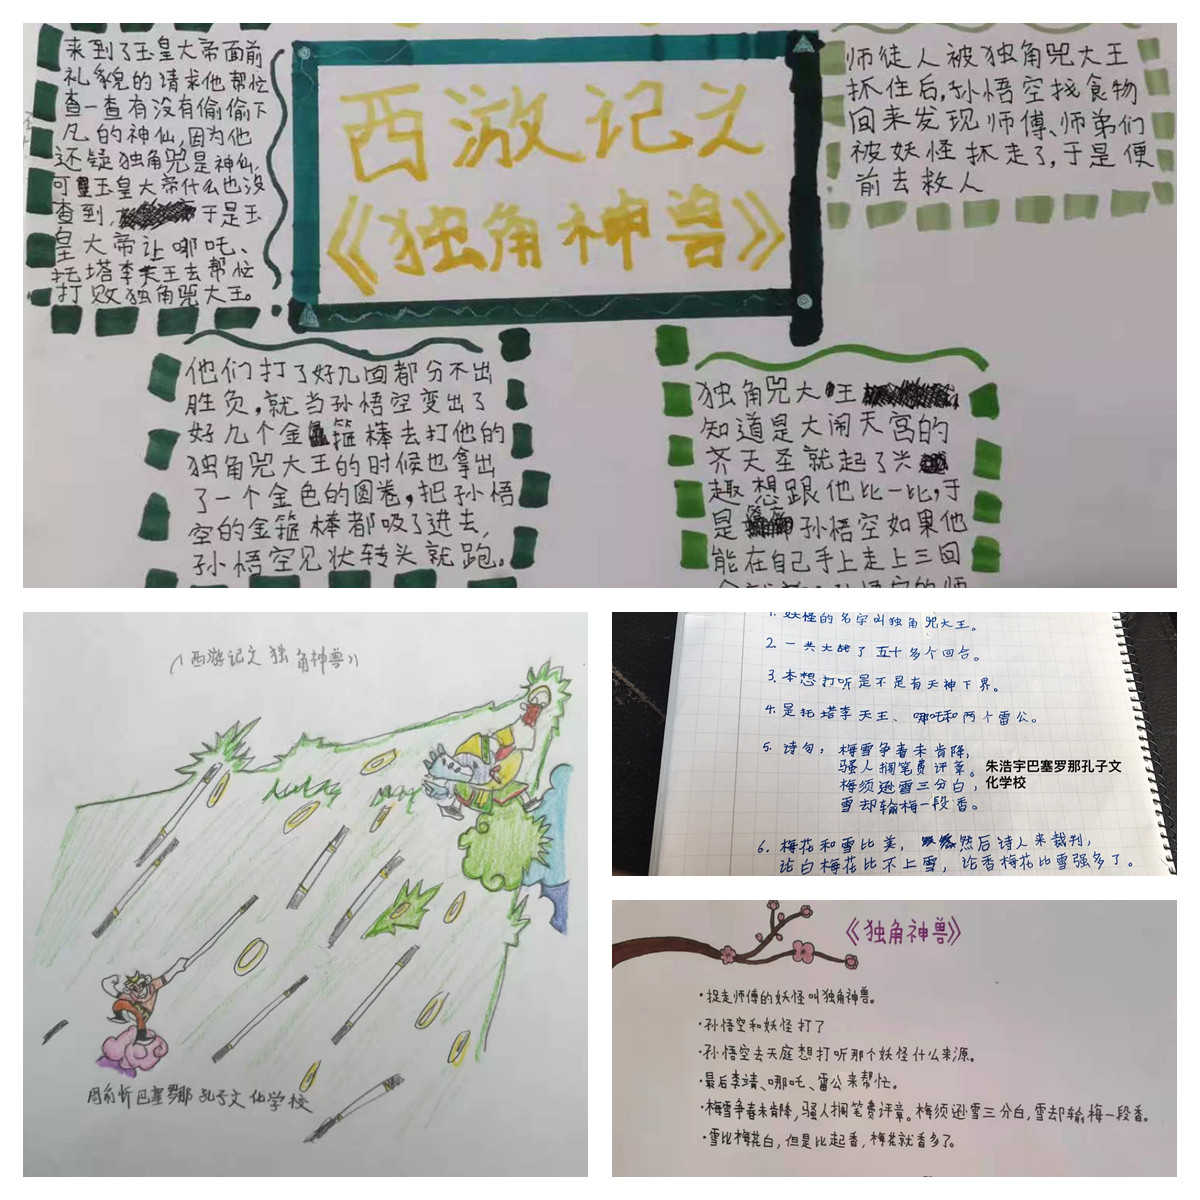 来到了玉皇大帝面前
礼貌的请求他帮忙
查一查有没有偷偷下
凡的神仙,因为他
还疑独角兕是神仙.
可玉皇大帝什么也没
查到,于是玉
皇大帝让哪吒、
托塔李天王去帮忙
打败独角兕大王。
西游记之
《独角神兽》
师徒人被独角兕大王
抓住后,孙悟空找食物
回来发现师傅、师弟们
被妖怪抓走了,于是便
前去救人
他们打了好几回都分不出
胜负,就当孙悟空变出了
好几个金箍棒去打他的
独角兕大王的时候也拿出
了一个金色的圆卷,把孙悟
空的金箍棒都吸了进去,
孙悟空见状转头就跑。
独角兕大王
知道是大闹天宫的
齐天圣就起了兴
趣想跟他比一比,于
是孙悟空如果他
能在自己手上走上三回
《西游记之独角神兽》
巴塞罗那孔子文化学校
1.妖怪的名字叫独角兕大王。
2.一共大战了五十多个回合。
3.本想打听是不是有天神下界。
4.是托塔李天王、哪吒和两个雷公。
5.诗句:梅雪争春未肯降,
骚人搁笔费评章。
梅须逊雪三分白,
雪却输梅一段香。
朱浩宇巴塞罗那孔子文
化学校
6.梅花和雪比美,然后诗人来裁判,
论白梅花比不上雪,论香梅花比雪强多了。
《独角神兽》
·捉走师傅的妖怪叫独角神兽。
·孙悟空和妖怪打了
·孙悟空去天庭想打听那个妖怪什么来源。
·最后李靖、哪吒、雷公来帮忙。
·梅雪争春未肯降,骚人搁笔费评章。梅须逊雪三分白,雪却输梅一段香。
·雪比梅花白,但是比起香,梅花就香多了。